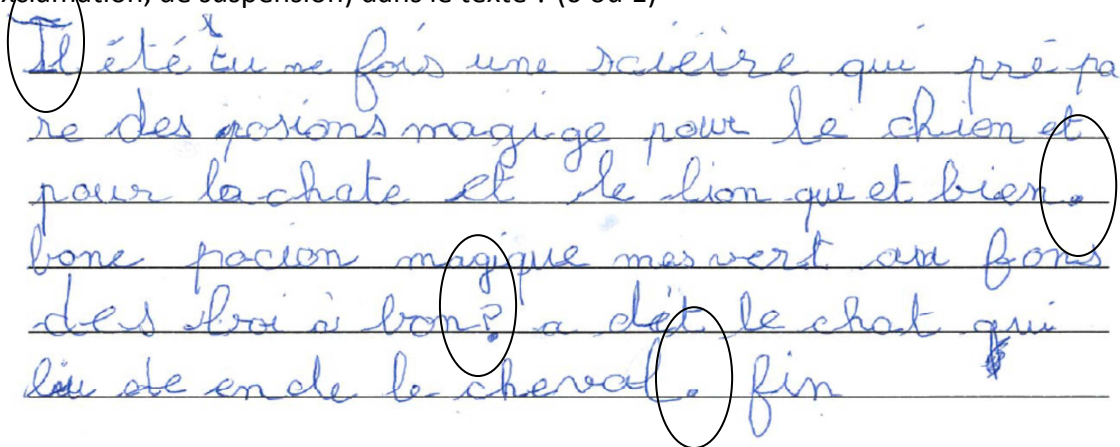 xclamation, de suspension) dans le texte ? (0 ou 1)
Il été tu ne fois une scieire qui pré pa
re des posions magige pour le chien et
pour la chate et le lion qui et bien.
bone pocion magique mes vert au fons
des boi à bon? a dit le chat qui
de le cheval. fin